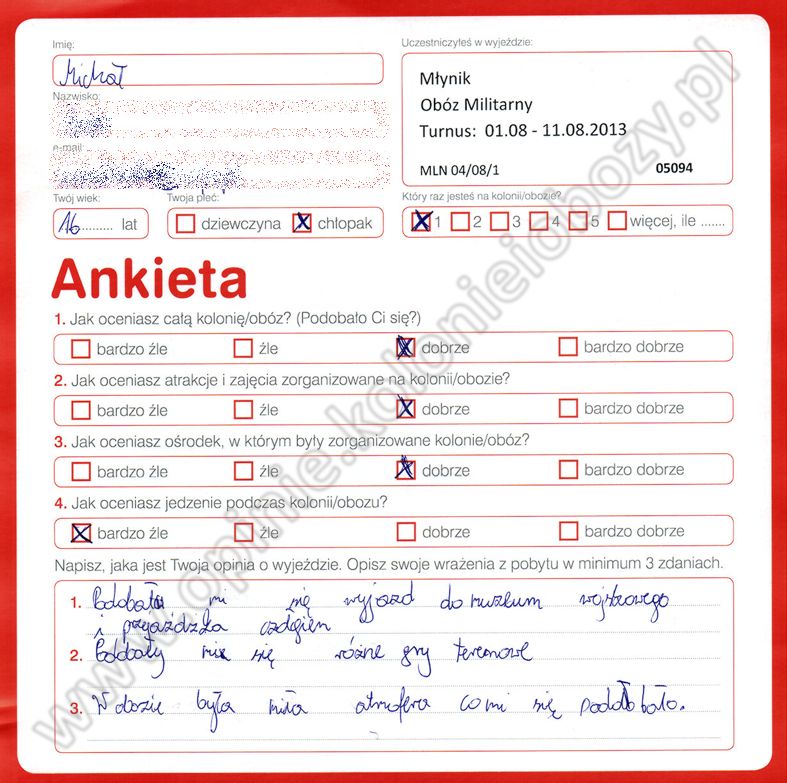 Imię:
Michał
Nazwisko:
e-mail:
Twój wiek:
16 lat
Twoja płeć:
dziewczyna chłopak
Uczestniczyłeś w wyjeździe:
Młynik
Obóz Militarny
Turnus: 01.08 - 11.08.2013
MLN 04/08/1 05094
Który raz jesteś na kolonii/obozie?
1 2 3 4 5 więcej, ile .......
Ankieta
1. Jak oceniasz całą kolonię/obóz? (Podobało Ci się?)
bardzo źle źle dobrze bardzo dobrze
2. Jak oceniasz atrakcje i zajęcia zorganizowane na kolonii/obozie?
bardzo źle źle dobrze bardzo dobrze
3. Jak oceniasz ośrodek, w którym były zorganizowane kolonie/obóz?
bardzo źle źle dobrze bardzo dobrze
4. Jak oceniasz jedzenie podczas kolonii/obozu?
bardzo źle źle dobrze bardzo dobrze
Napisz, jaka jest Twoja opinia o wyjeździe. Opisz swoje wrażenia z pobytu w minimum 3 zdaniach.
1. mi się wyjazd do muzeum
i
2. się różne gry terenowe
3. W była miła atmofera co mi się
www.opinie.kolonieiobozy.pl